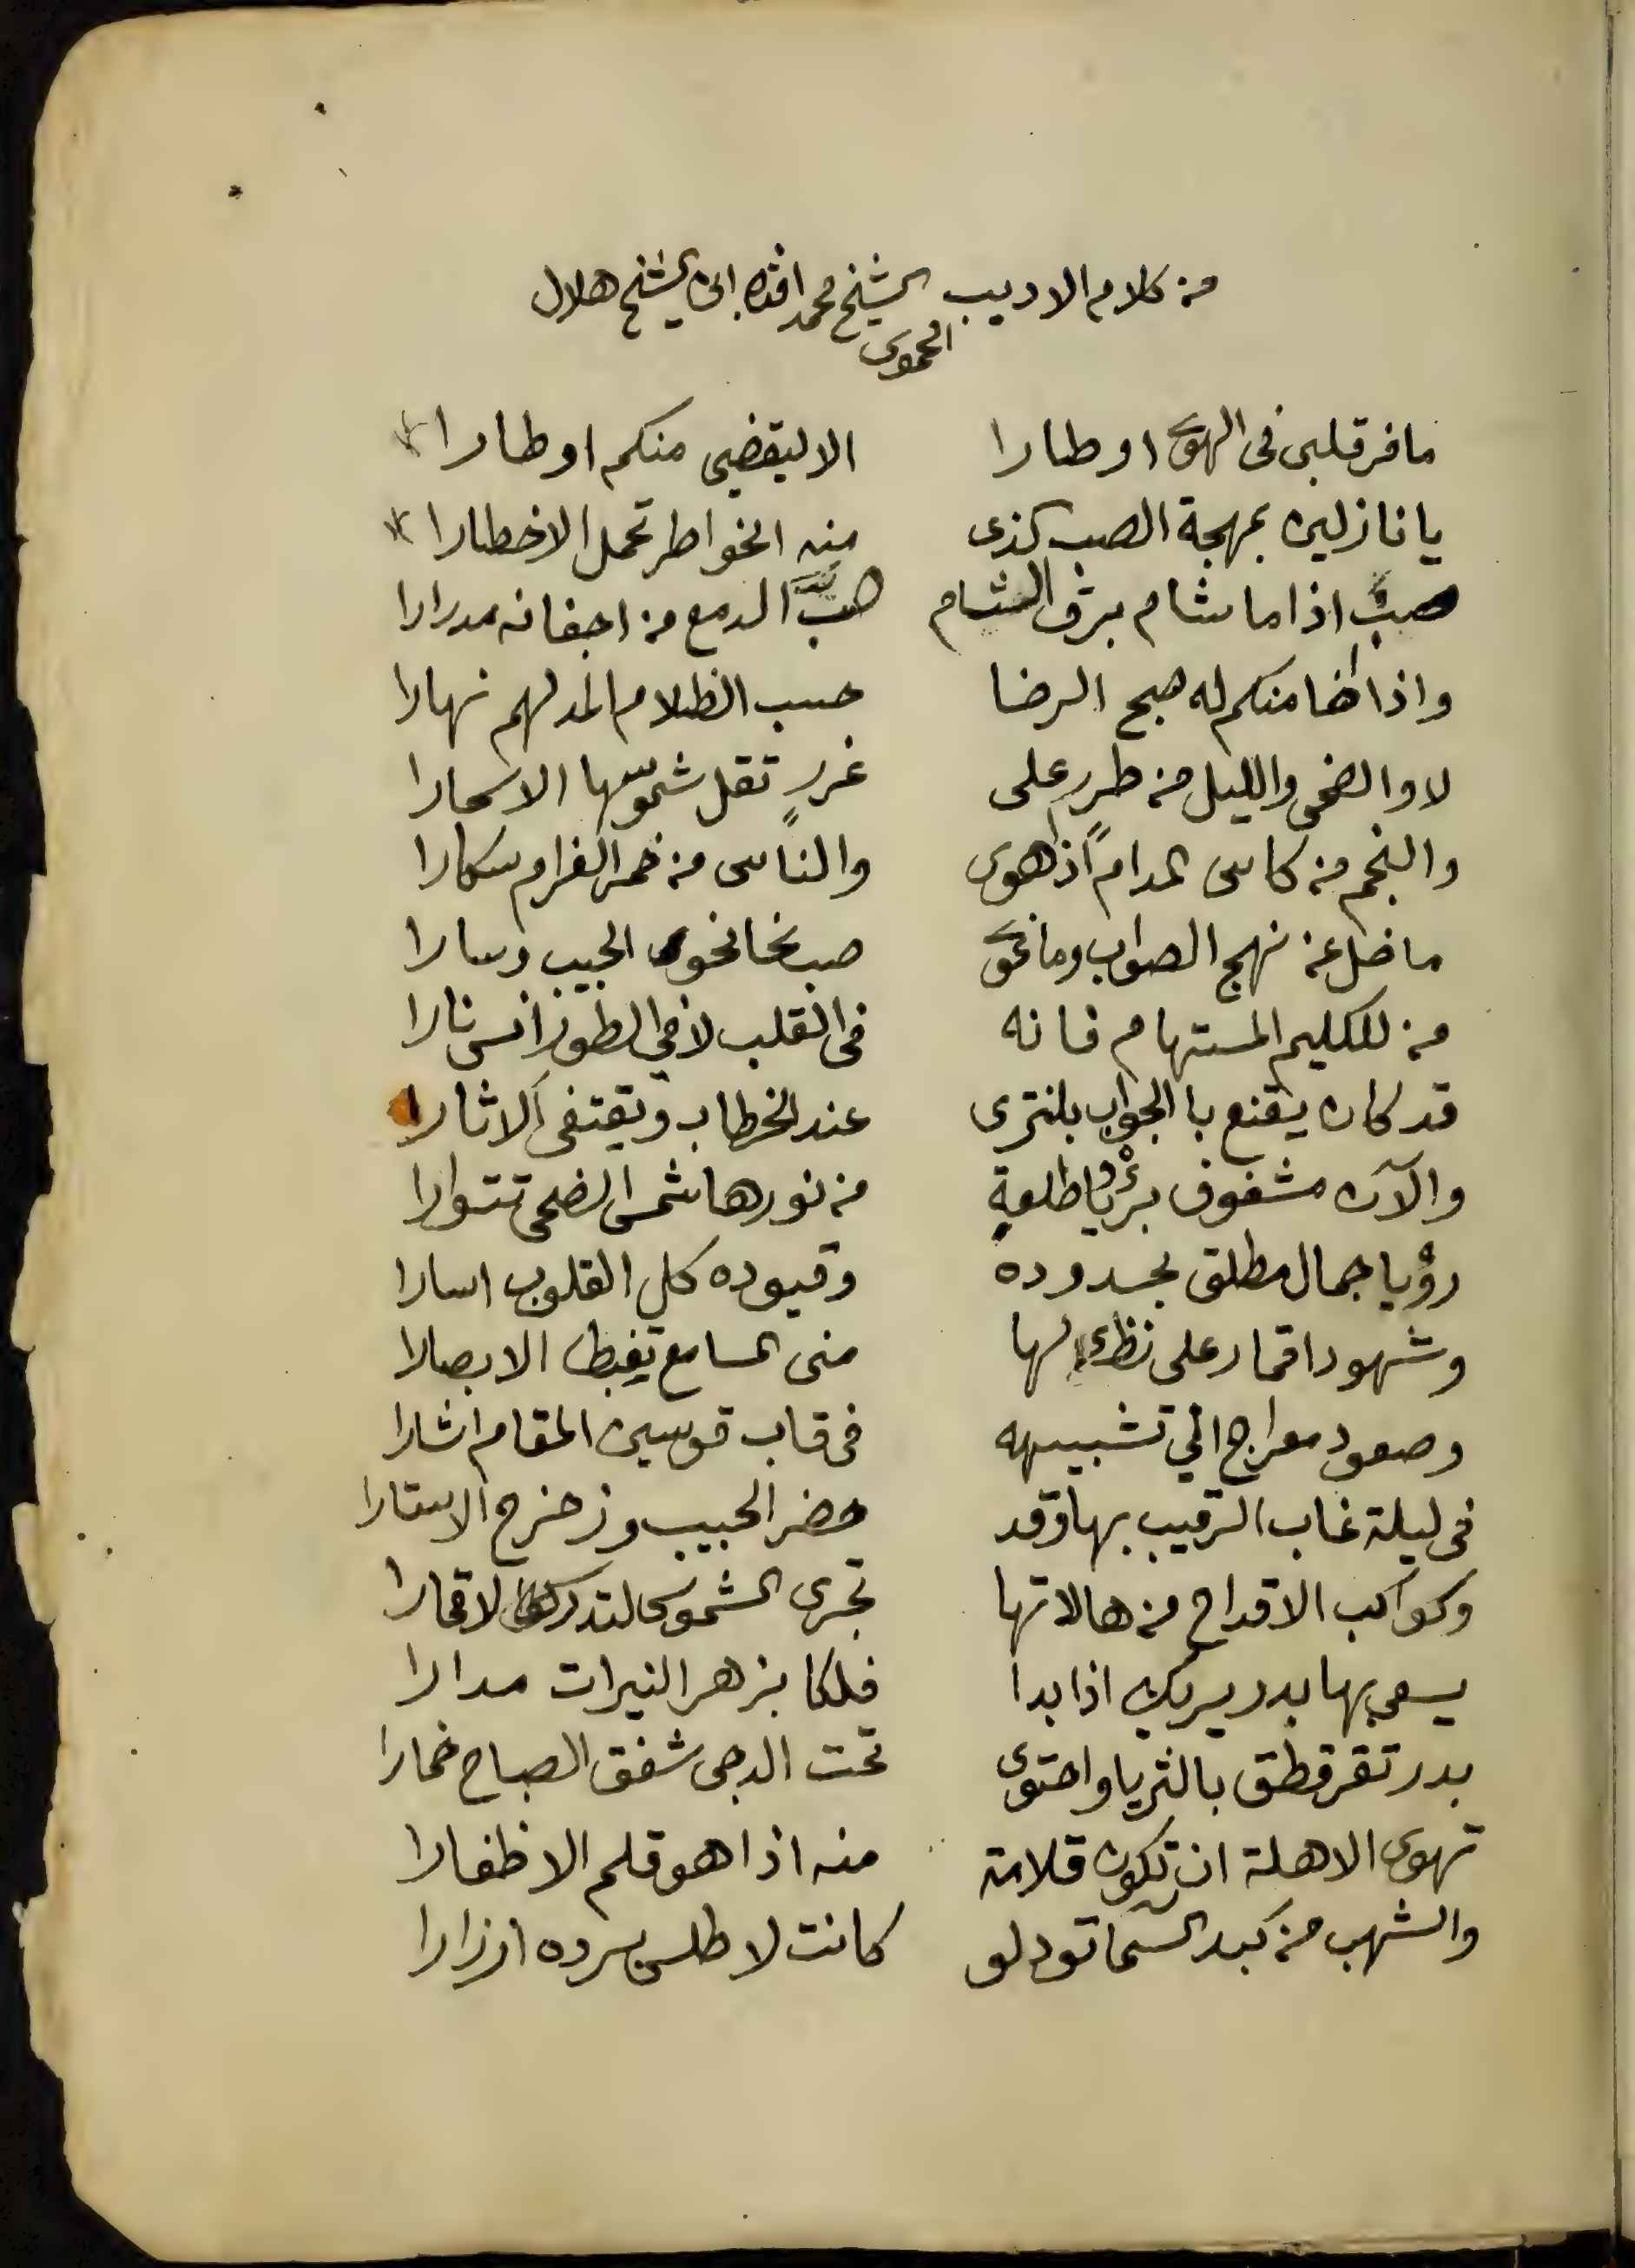 من كلام الاديب الشيخ محمد افندى ابن الشيخ هلال
الحموى
مافر قلبى فى الهوى اوطارا الا ليقضى منكم اوطارا
يا نازلين بمهجة الصب كذى منه الخواطر تحمل الاخطارا
صبٌ اذا ما شام برق الشام صبَّ الدمع من اجفانه مدرارا
واذا اضا منكم له صبح الرضا حسب الظلام المدلهم نهارا
لا والضحى والليل من طرر على غررٍ تقل شموسها الاسحارا
والنجم من كاس المدام اذا هوى والناس من خمر الغرام سكارا
ما ضل عن نهج الصواب وما غوى صب نحا نحو الحبيب وسارا
من للكليم المستهام فانه فى القلب لا فى الطور آنس نارا
قد كان يقنع با الجواب بلن ترى عند الخطاب ويقتفى الاثارا
والآن مشغوف برؤيا طلعةٍ من نورها شمس الضحى تتوارا
رؤيا جمال مطلق بحدوده وقيوده كل القلوب اسارا
وشهود اقمار على نظرى لها منى المسامع تغبط الابصارا
وصعود معراج الي تشبيهه فى قاب قوسين المقام اشارا
فى ليلة غاب الرقيب بها وقد حضر الحبيب وزحزح الاستارا
وكواكب الاقداح من هالاتها تجرى الشموس لتدرك الاقمارا
يسعى بها بدر يريك اذا بدا فلكا بزهر النيرات مدارا
بدر تقرقطق بالثريا واحتوى تحت الدجى شفق الصباح خمارا
تهوى الاهلة ان تكون قلامة منه اذا هو قلم الاظفارا
والشهب من كبد السما تود لو كانت لاطلس برده ازرارا